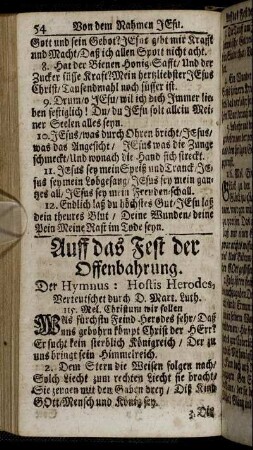 54 Von dem Nahmen JEsu.
Gott und sein Gebot? JEsus gibt mir Krafft
und Macht/ Daß ich allen Spott nicht acht.
8. Hat der Bienen Honig-Safft/ Und der
Zucker süsse Krafft? Mein hertzliebster JEsus
Christ/ Tausendmahl noch süsser ist.
9. Drum/ o JEsu/ wil ich dich Immer lie-
ben festiglich! Du/ du JEsu solt allein Mei-
ner Seelen alles seyn.
10. JEsus/ was durch Ohren bricht/ JEsus/
was das Angesicht/ JEsus was die Zunge
schmeckt/ Und wonach die Hand sich streckt.
11. JEsus sey mein Speiß und Tranck JE-
sus sey mein Lobgesang/ JEsus sey mein gan-
tzes all/ JEsus sey mein Freudenschall.
12. Endlich laß du höchstes Gut/ JEsu laß
dein theures Blut/ Deine Wunden/ deine
Pein Meine Rast im Tode seyn.
Auff das Fest der
Offenbahrung.
Der Hymnus: Hostis Herodes,
Verteutschet durch D. Mart. Luth.
115. Mel. Christum wir sollen
WAs fürchstu Feind Herodes sehr/ Daß
uns gebohrn kömpt Christ der HErr?
Er sucht kein sterblich Königreich/ Der zu
uns bringt sein Himmelreich.
2. Dem Stern die Weisen folgen nach/
Solch Liecht zum rechten Liecht sie bracht/
Sie zeigen mit den Gaben drey/ Diß Kind
GOtt/ Mensch und König sey.